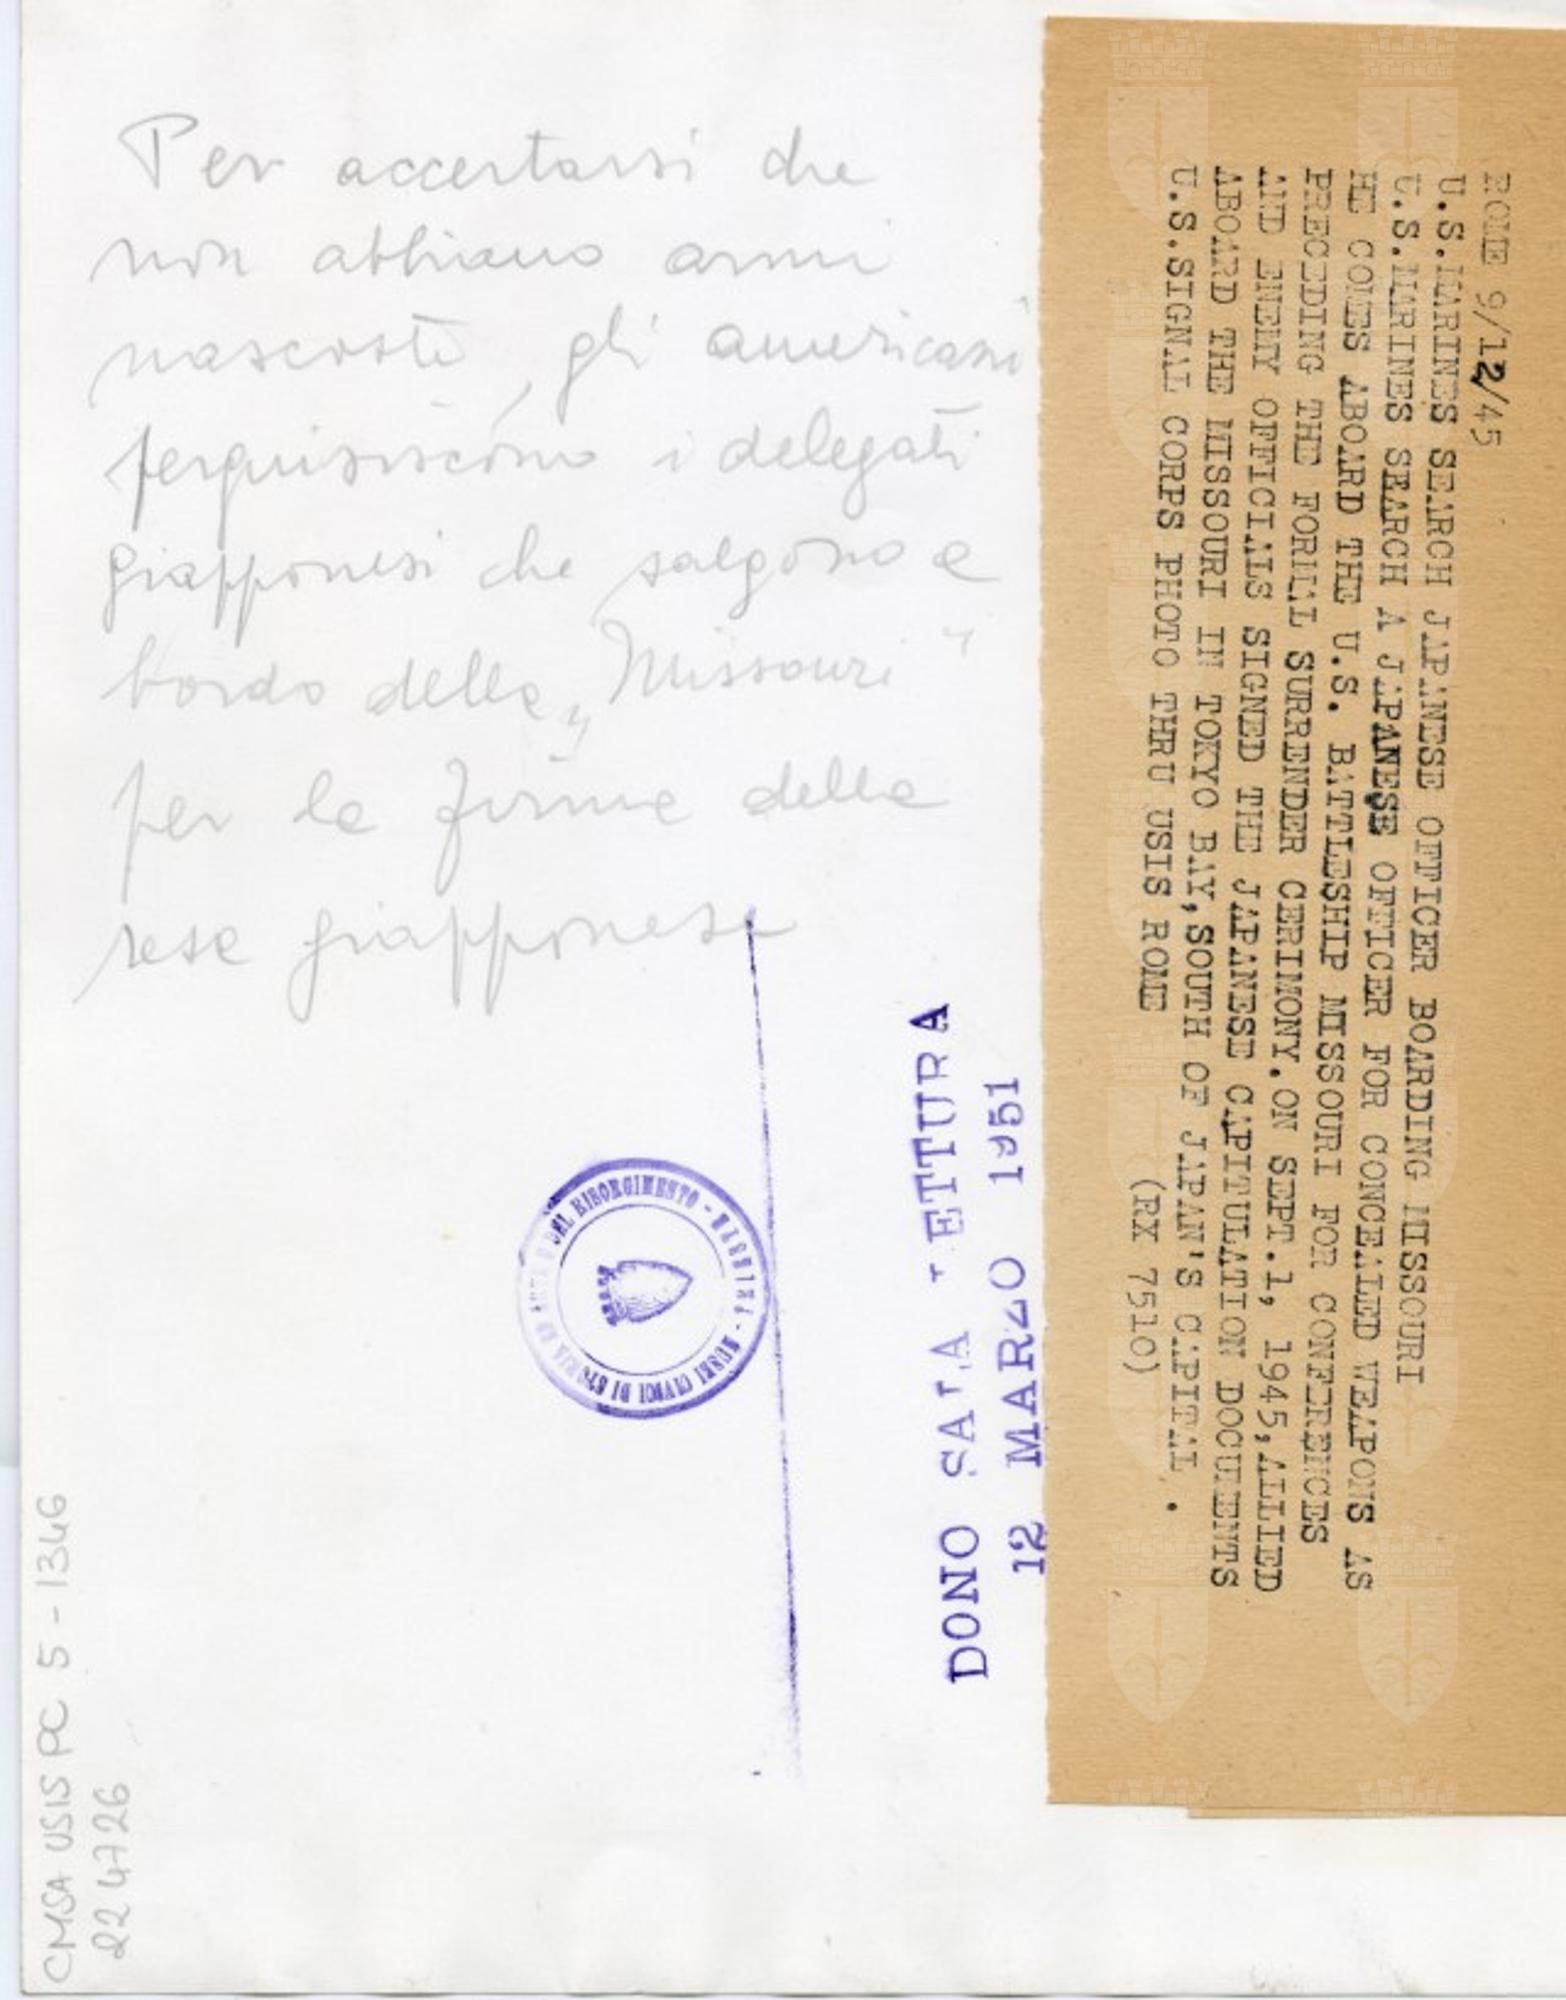 Per accertarsi che
non abbiano armi
nascoste, gli americani
perquisiscono i delegati
giapponesi che salgono a
bordo della „Missouri"
per la firma della
resa giapponese
ROME 9/12/45
U.S.MARINES SEARCH JAPANESE OFFICER BOARDING MISSOURI
U.S.MARINES SEARCH A JAPANESE OFFICER FOR CONCEALED WEAPONS AS
HE COMES ABOARD THE U.S. BATTLESHIP MISSOURI FOR CONFERENCES
PRECEDING THE FORMAL SURRENDER CERIMONY.ON SEPT.1, 1945,ALLIED
AND ENEMY OFFICIALS SIGNED THE JAPANESE CAPITULATION DOCUMENTS
ABOARD THE MISSOURI IN TOKYO BAY,SOUTH OF JAPAN'S CAPITAL .
U.S.SIGNAL CORPS PHOTO THRU USIS ROME (RX 7510)
DONO SALA LETTURA
12 MARZO 1951
MUSEI CIVICI DI STORIA ED ARTE E DEL RISORGIMENTO -
CMSA USIS PC 5-1346
22 4726